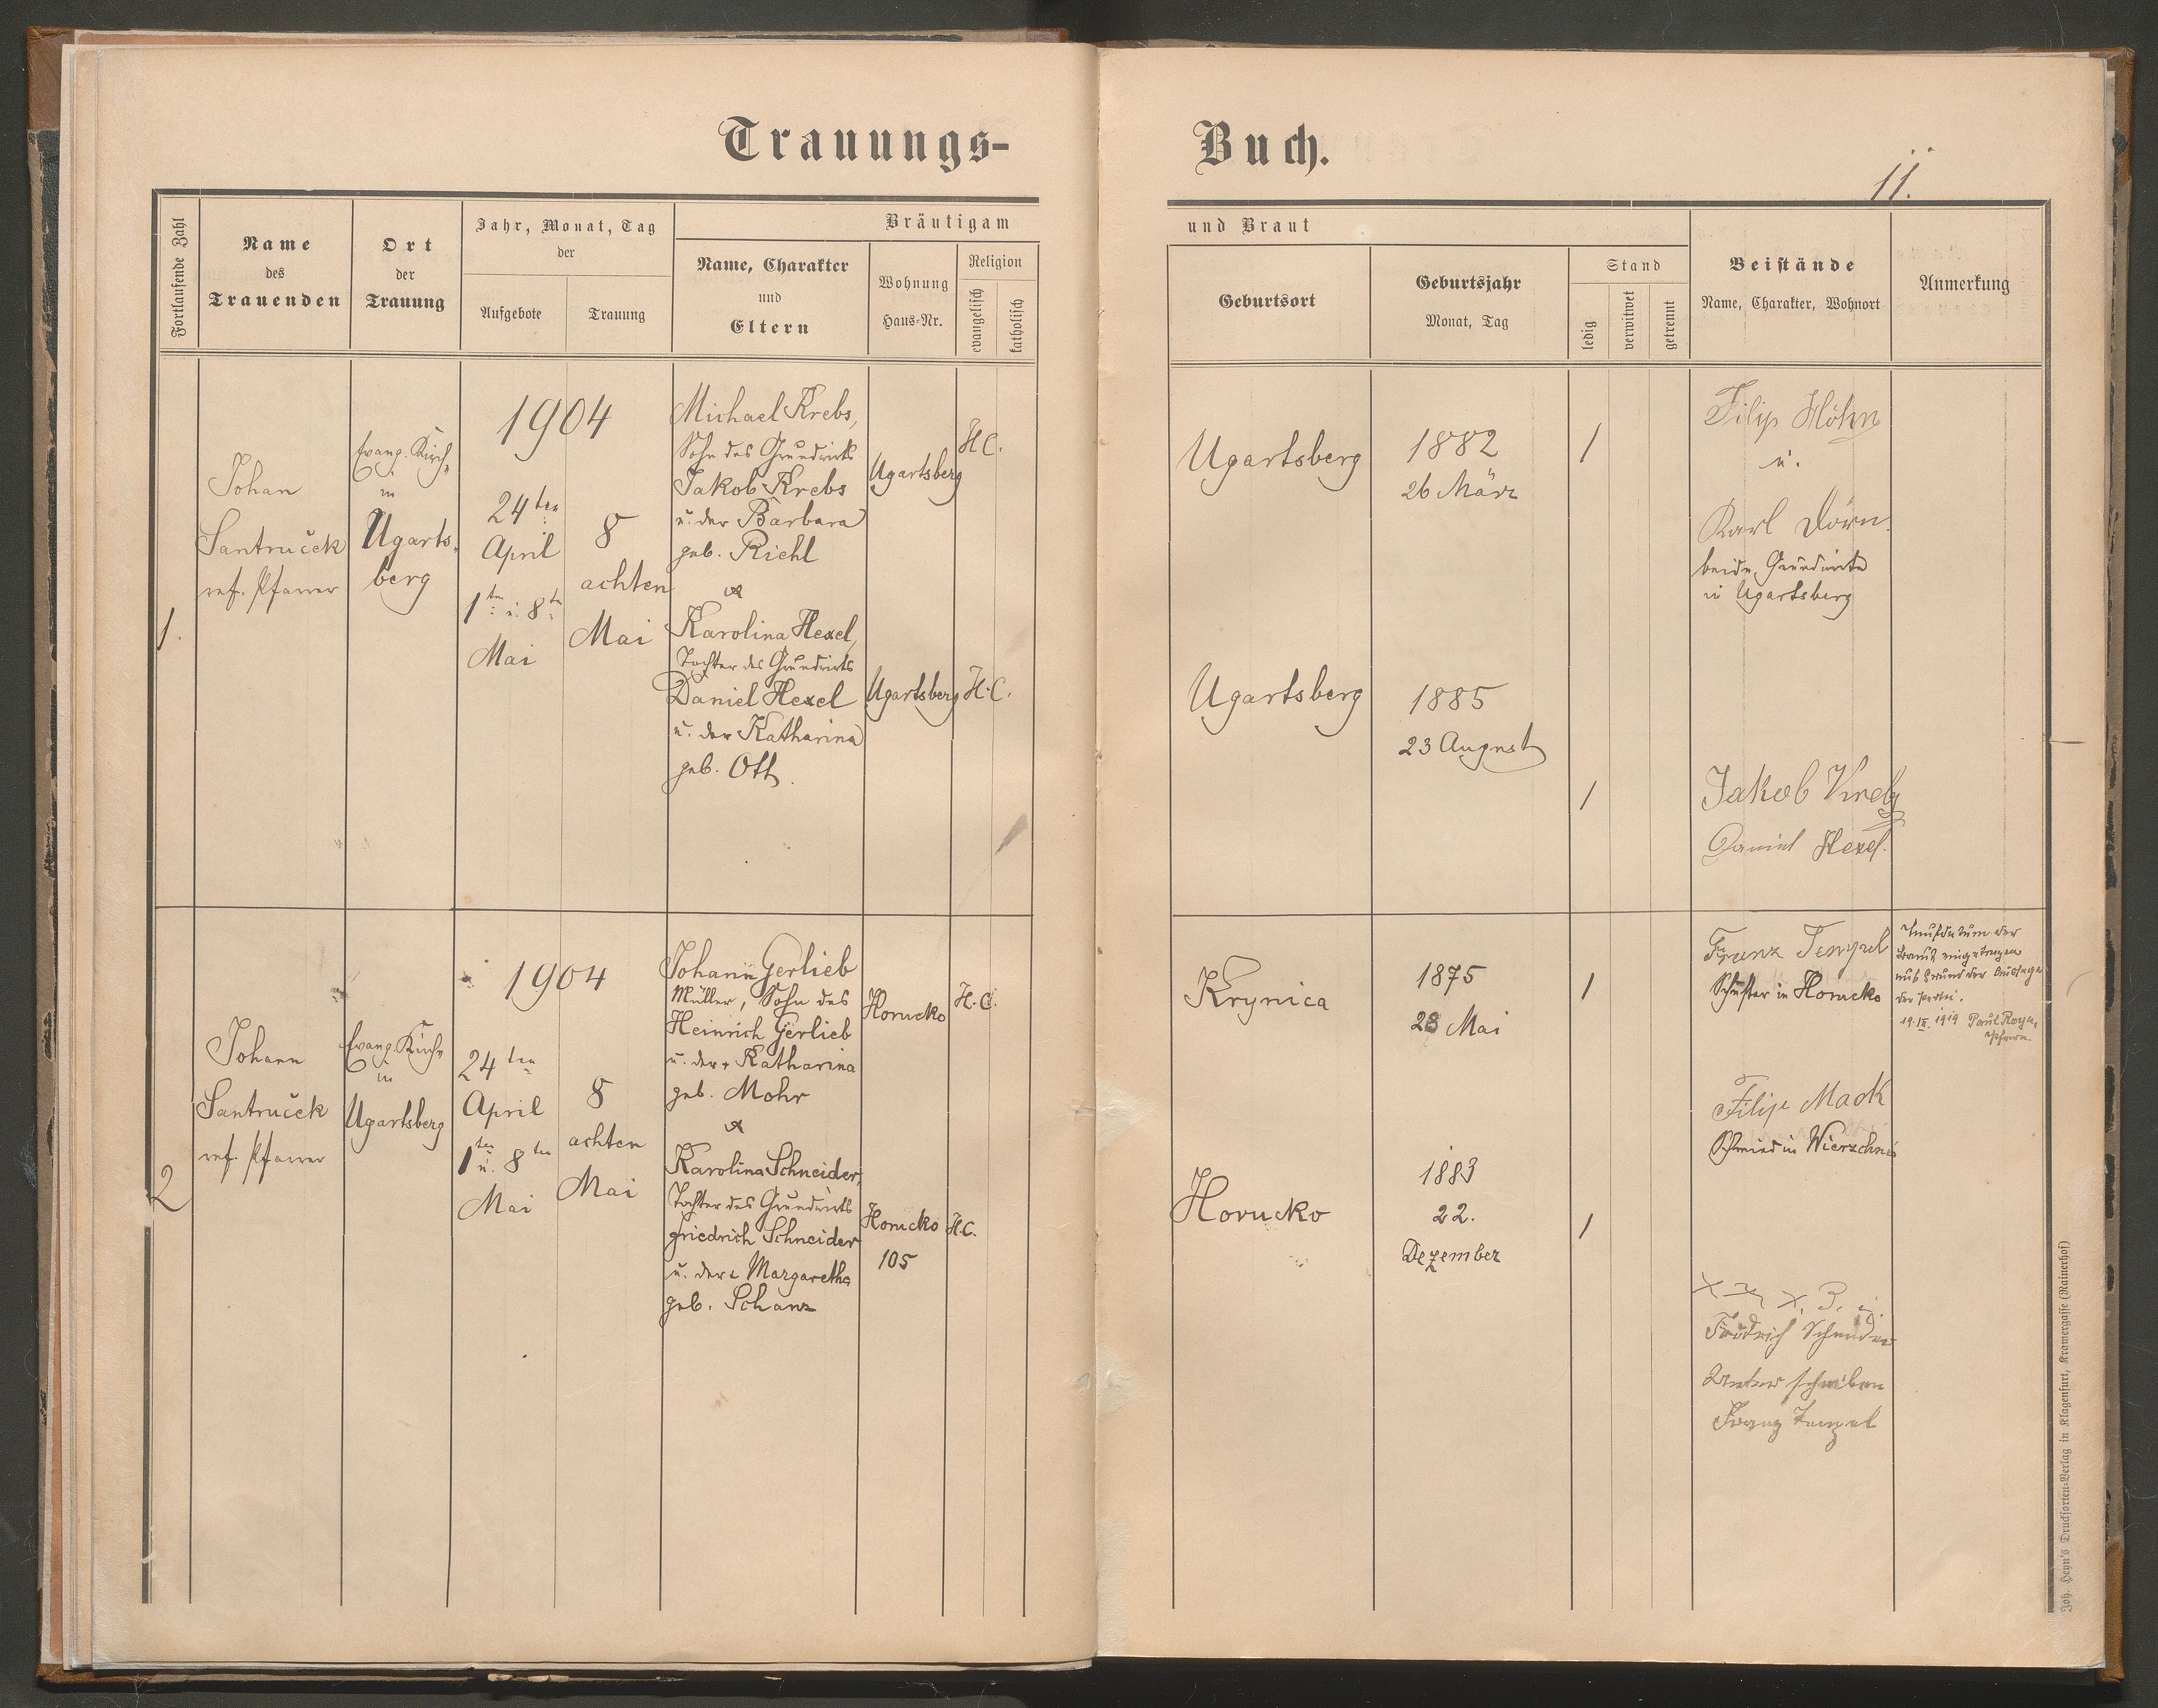 Trauungs-
Buch.
11.
Fortlaufende Zahl
Name
des
Trauenden
Ort
der
Trauung
Jahr, Monat, Tag
der
Aufgebote
Trauung
Bräutigam
Name, Charakter
und
Eltern
Wohnung
Haus-Nr.
Religion
evangelisch
katholisch
und Braut
Geburtsort
Geburtsjahr
Monat, Tag
Stand
ledig
verwitwet
getrennt
Beistände
Name, Charakter, Wohnort
Anmerkung
1.
Johan
Santruček
ref. Pfarrer
Evang. Kirche
in
Ugarts-
berg
1904
24ten
April
1ten u. 8ten
Mai
8
achten
Mai
Michael Krebs,
Sohn des Grundwirts
Jakob Krebs
u. der Barbara
geb. Riehl
&
Karolina Hexel,
Tochter des Grundwirts
Daniel Hexel
u. der Katharina
geb. Ott
Ugartsberg
H.C.
Ugartsberg
H.C.
Ugartsberg
1882
26 März
/
Ugartsberg
1885
23 August
/
Filip Höhn
u.
Karl Dörn
beide Grundwirte
in Ugartsberg
Jakob
Daniel Hexel.
2
Johann
Santruček
ref. Pfarrer
Evang. Kirche
in
Ugartsberg
1904
24ten
April
1ten u. 8ten
Mai
8
achten
Mai
Johann Gerlieb
Müller, Sohn des
Heinrich Gerlieb
u. der Katharina
geb. Mohr
&
Karolina Schneider,
Tochter des Grundwirts
Friedrich Schneider
u. der Margaretha
geb. Schanz
Horucko
H.C.
Horucko
105
H.C.
Krynica
1875
28 Mai
/
Horucko
1883
22.
Dezember
/
Franz Tenzel
Schuster in Horucko
Filip Mack
Schmied in
Friedrich Schneider
Unterschriben
Franz Tenzel
Taufdatum der
Braut eingetragen
auf Grund der Aussage
der Partei.
19. IX. 1919 Paul Royer,
Pfarrer.
Joh. Heyn's Drucksorten-Verlag in Klagenfurt, Kramergasse (Rainerhof)